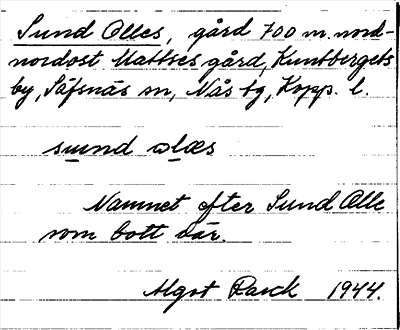 Sund Olles, gård 700 m. nord-
nordost Mattses gård, Kuntbergets
by, Säfsnäs sn, Nås tg, Kopp. l.
sund olæs
Namnet efter Sund Olle
som bott där.
Algot Rack 1944.